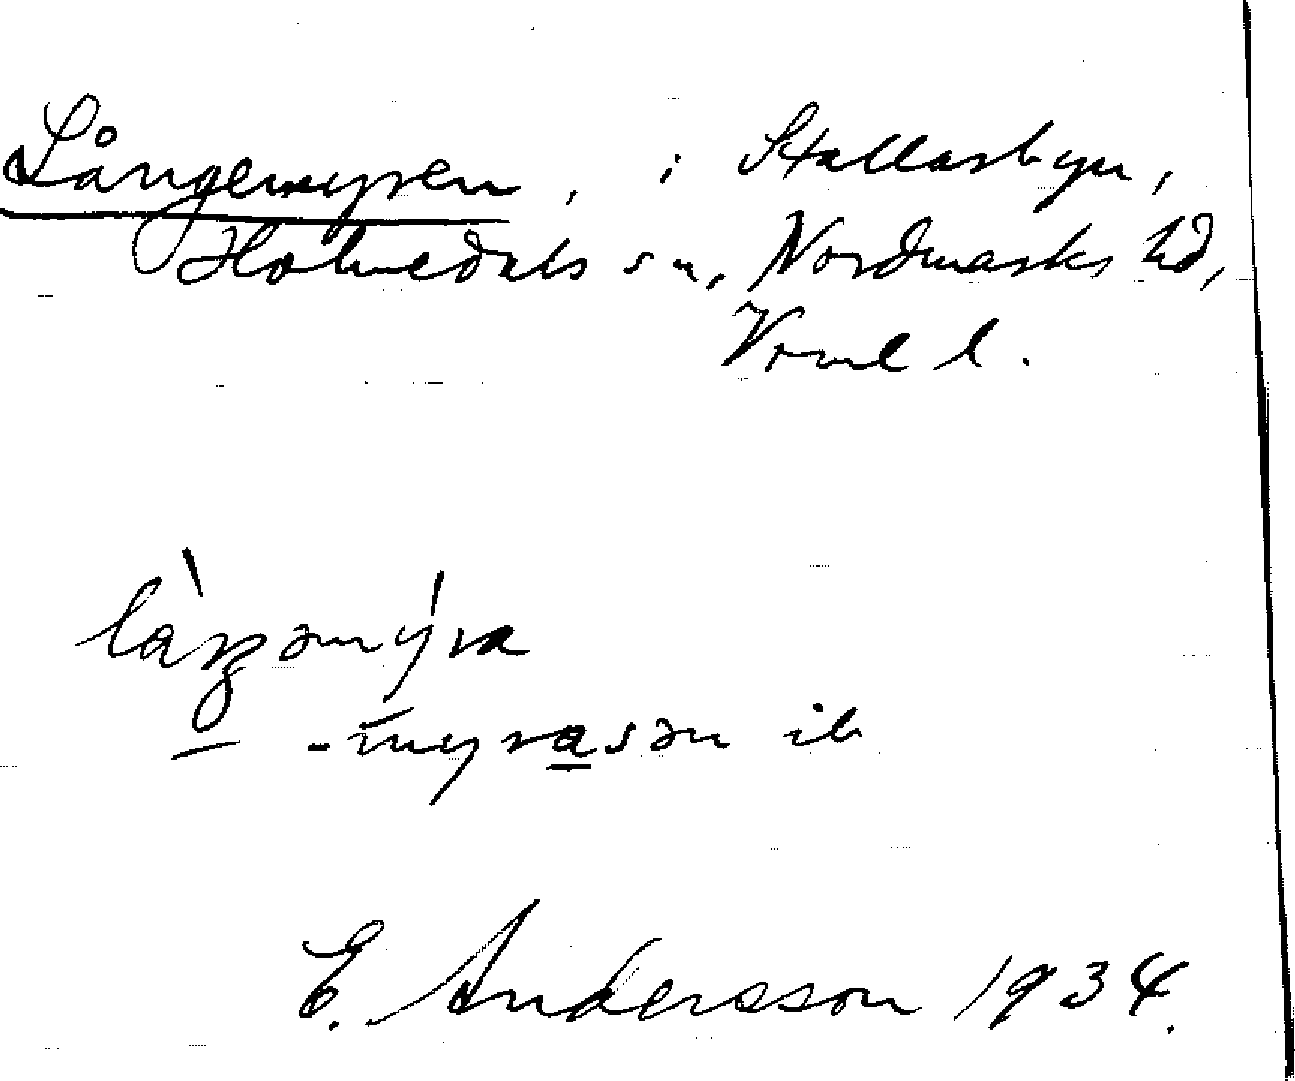 Långemyren, i Stallarbyn,
Holmedals sn, Nordmarks hd,
Vrml l.
làŋgəmýra
– -myrasən ib
E. Andersson 1934.